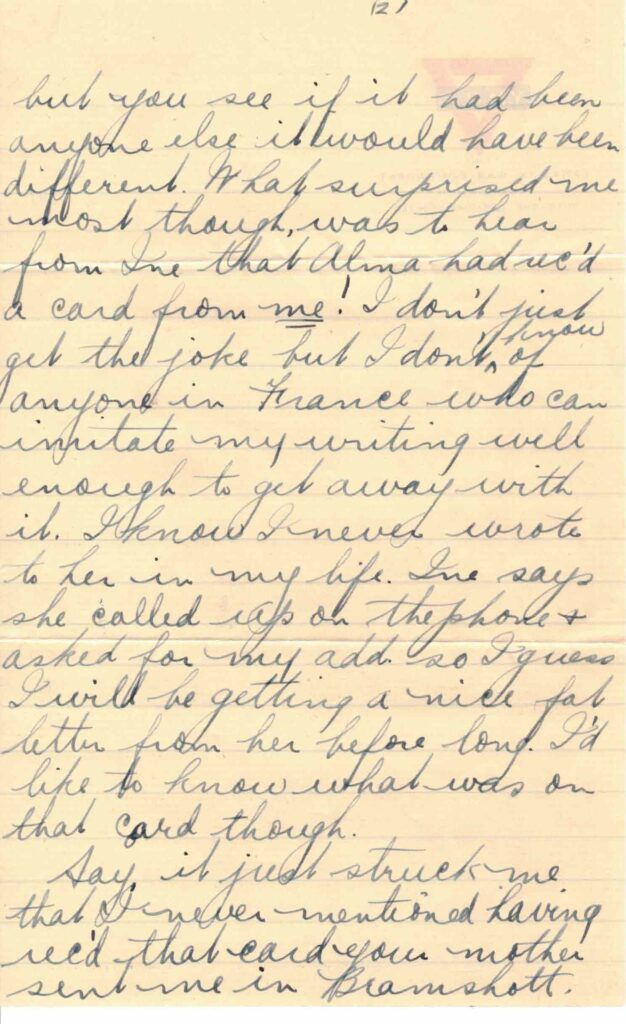 12)
but you see if it had been
anyone else it would have been
different. What surprised me
most though, was to hear
from Ine that Alma had rec'd
a card from me! I don't just
get the joke but I don't know of
anyone in France who can
imitate my writing well
enough to get away with
it. I know I never wrote
to her in my life. Ine says
she called up on the phone &
asked for my add. so I guess
I will be getting a nice fat
letter from her before long. I'd
like to know what was on
that card though.
Say, it just struck me
that I never mentioned having
rec'd that card your mother
sent me in Bramshott.